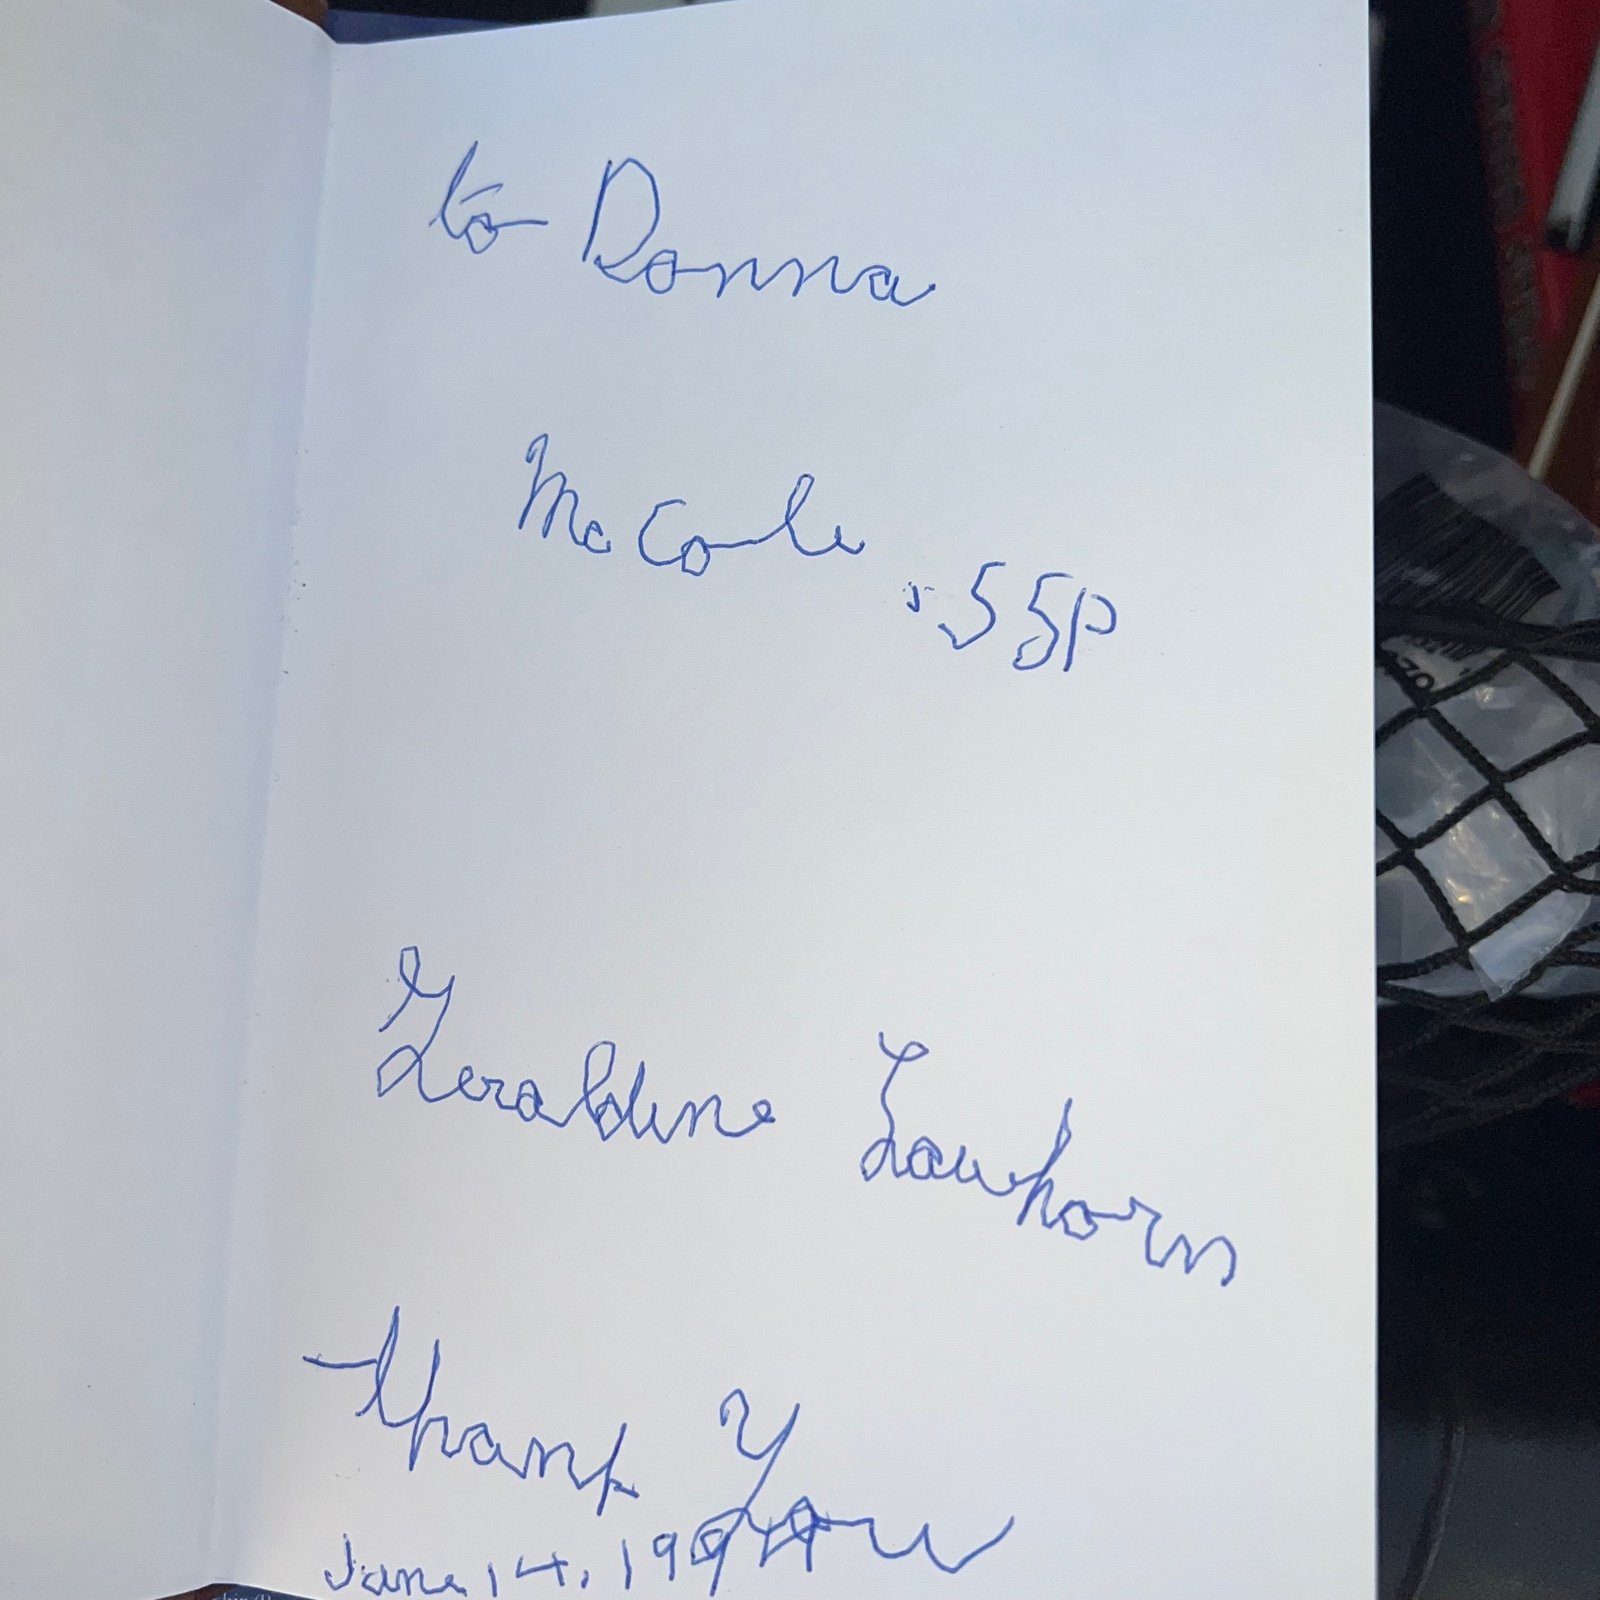 to Donna
McCole, SSP
Geraldine Lawhorn
Thank You
June 14, 1991